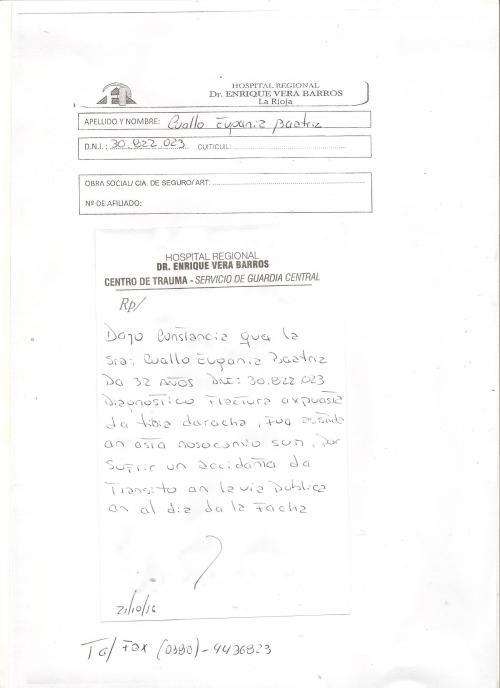 HOSPITAL REGIONAL
Dr. ENRIQUE VERA BARROS
La Rioja
APELLIDO Y NOMBRE: Cuallo Eugania Baatriz
D.N.I.: 30.822.023 CUIT/CUIL:
OBRA SOCIAL/ CIA. DE SEGURO/ ART:
Nº DE AFILIADO:
HOSPITAL REGIONAL
DR. ENRIQUE VERA BARROS
CENTRO DE TRAUMA - SERVICIO DE GUARDIA CENTRAL
Rp/
Dajo Constancia qua la
Sra: Cuallo Eugania Baatriz
Da 32 Años DNI: 30.822.023
Diagnostico Fractura axpuasta
da tibia daracha, Fua asistida
an asta nosocomio por
Sufrir un accidanta da
Transito an la via publica
an al dia da la Facha
21/10/16
Ta/ Fax (0380)-4436823